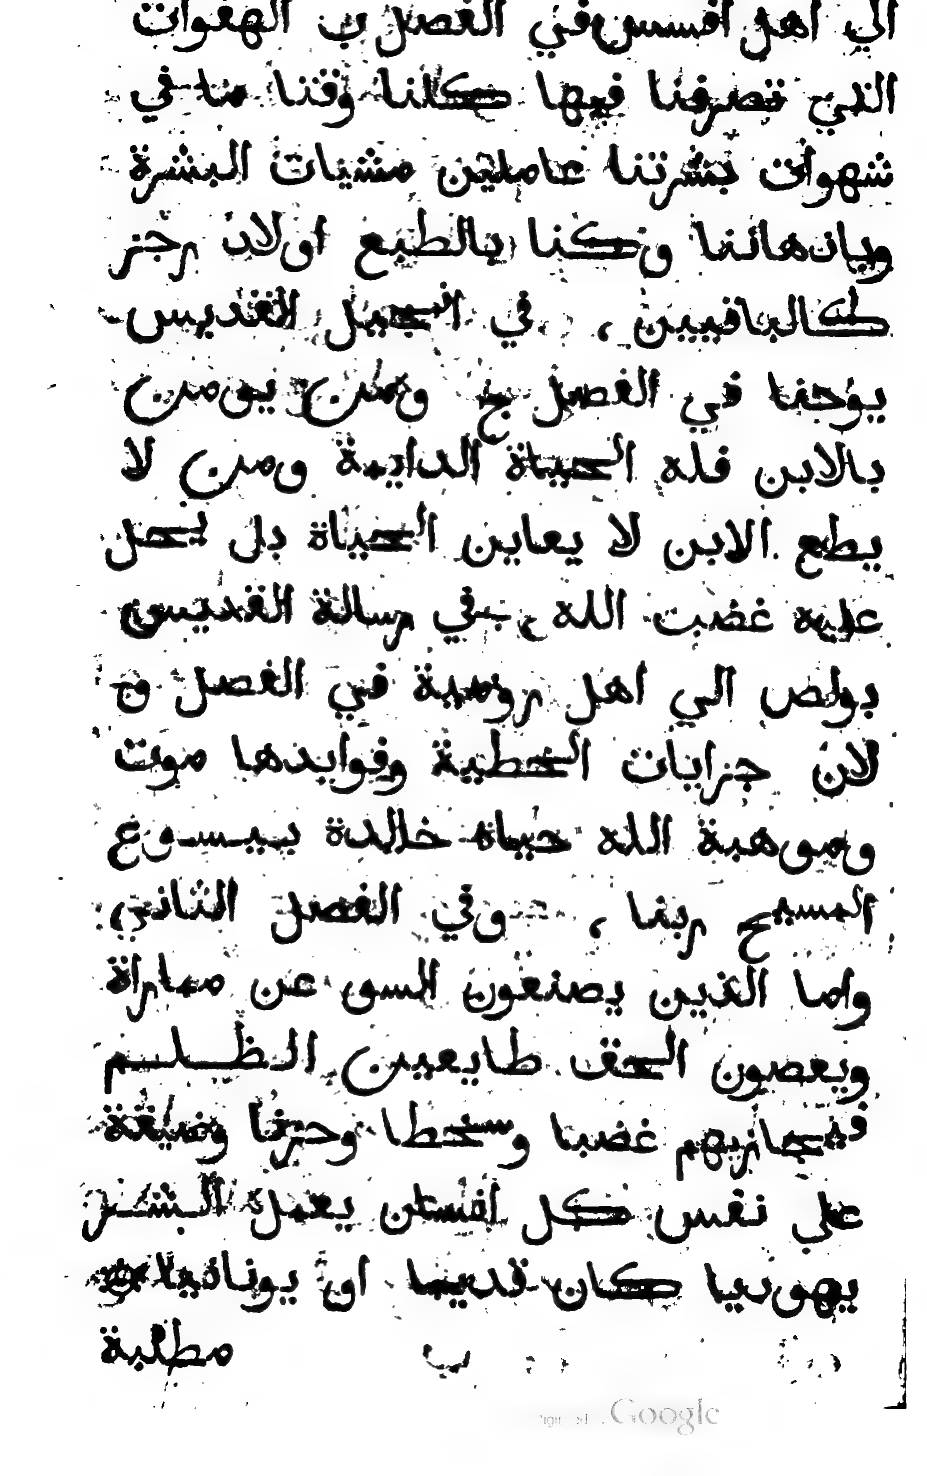 الي اهل افسس في الفصل ب الهفوات
الذي تصرفنا فيها كلنا وقتا ما في
شهوات بشرتنا عاملين مشيات البشرة
وباذهاننا وكنا بالطبع اولاد رجز
كالباقيين، في انجيل القديس
يوحنا في الفصل ج ومن يومن
بالابن فله الحياة الدايمة ومن لا
يطع الابن لا يعاين الحياة بل يحل
عليه غضب الله، وفي رسالة القديس
بولص الي اهل رومية في الفصل و
لان جزايات الخطية وفوايدها موت
وموهبة الله حياة خالدة بيسوع
المسيح ربنا، وفي الفصل الثاني
واما الذين يصنعون السو عن مماراة
ويعصون الحق طايعين الظلم
فيجازيهم غضبا وسخطا وحزنا وضيقة
علي نفس كل انسان يعمل الشر
يهوديا كان قديما او يونانيا
ب
مطلبة
Google